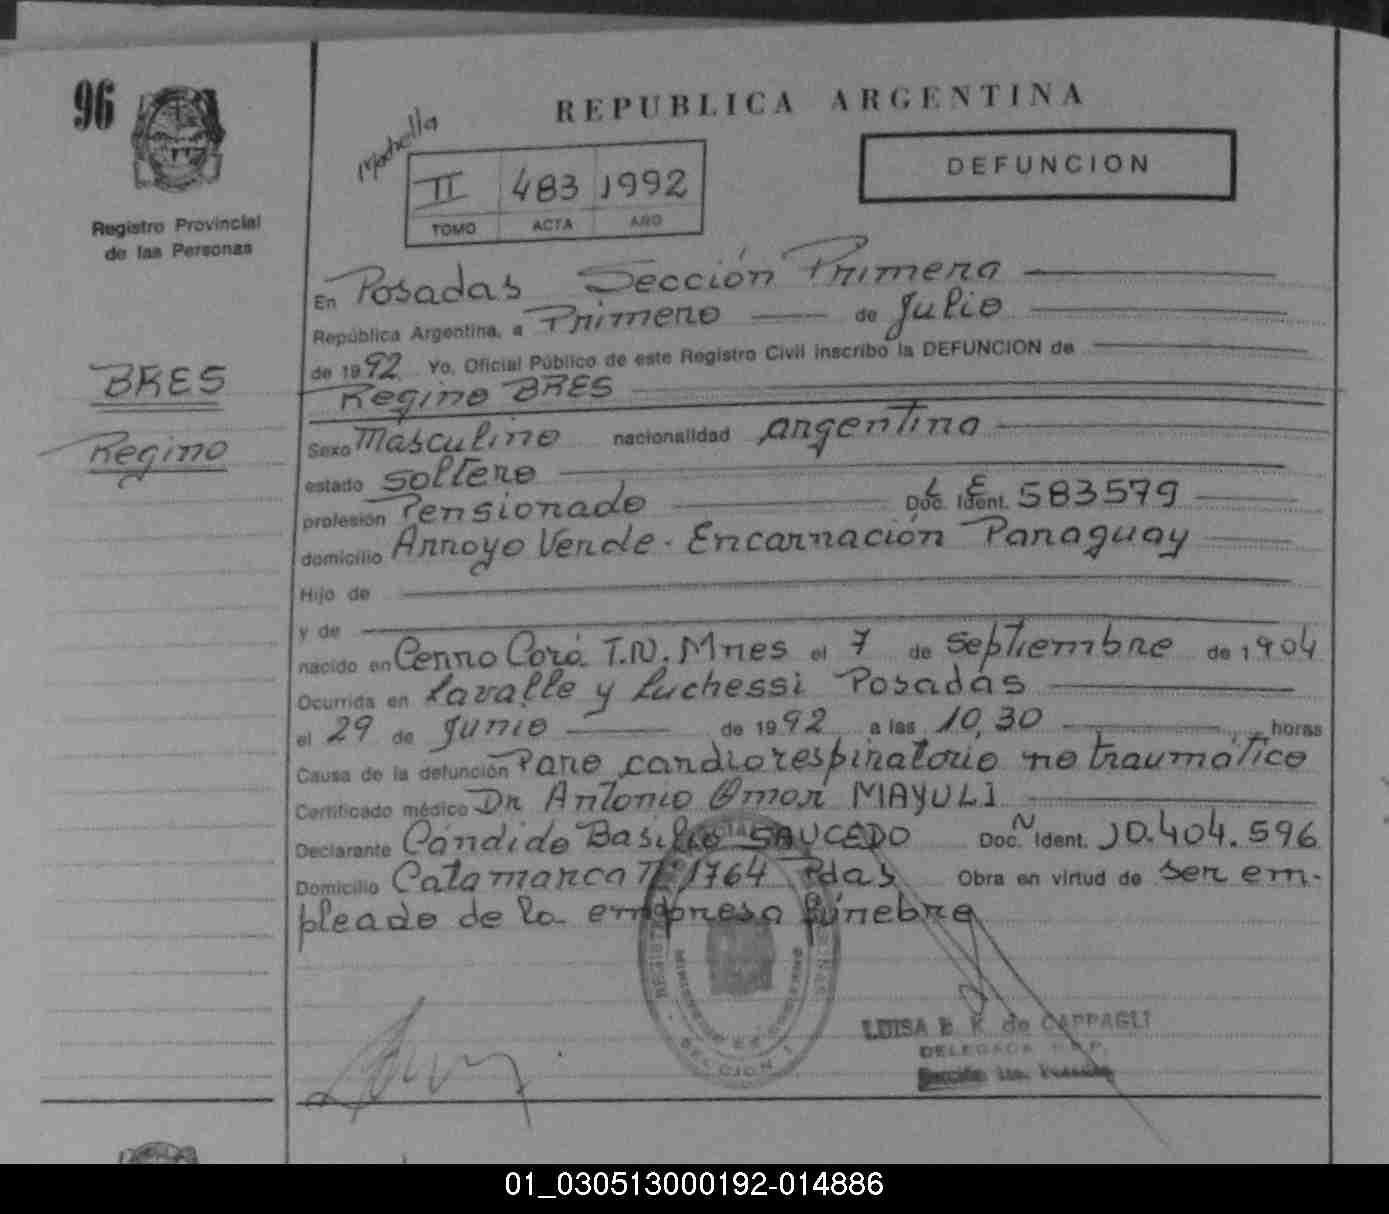 96
REPUBLICA ARGENTINA
DEFUNCION
II 483 1992
TOMO ACTA AÑO
Registro Provincial
de las Personas
BRES
Regino
En Posadas Sección Primera
República Argentina, a Primero de Julio
de 1992 Yo, Oficial Público de este Registro Civil inscribo la DEFUNCION de
Regino BRES
Sexo Masculino nacionalidad argentina
estado soltero
profesión Pensionado Doc. Ident. L E 583579
domicilio Arroyo Verde - Encarnación Paraguay
Hijo de
y de
nacido en Cerro Corá T.N. Mnes el 7 de septiembre de 1904
Ocurrida en Lavalle y Luchessi Posadas
el 29 de Junio de 1992 a las 10,30 horas
Causa de la defunción Paro cardiorespiratorio no traumático
Certificado médico Dr Antonio Omar MAYULI
Declarante Cándido Basilio SAUCEDO Doc. N Ident. 10.404.596
Domicilio Catamarca Nº 1764 Pdas Obra en virtud de ser em-
pleado de la empresa fúnebre
LUISA E. K. de CAPPAGLI
DELEGADA
SECCION 1
01_030513000192-014886